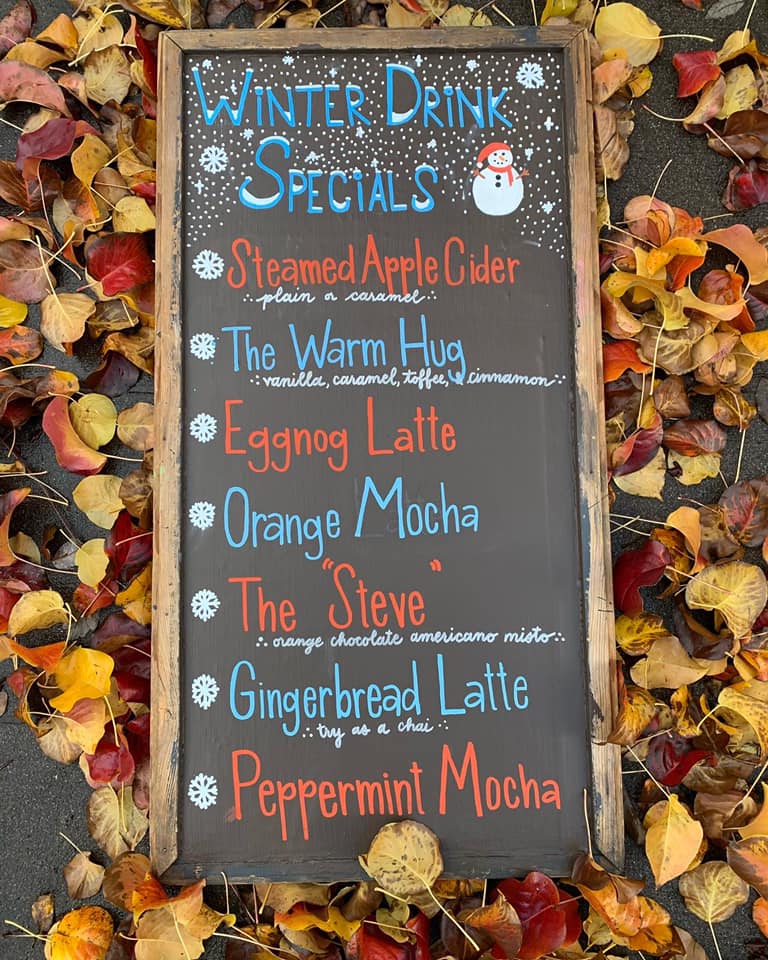 Winter Drink
Specials
Steamed Apple Cider
plain or caramel
The Warm Hug
vanilla, caramel, toffee, & cinnamon
Eggnog Latte
Orange Mocha
The "Steve"
orange chocolate americano misto
Gingerbread Latte
try as a chai
Peppermint Mocha